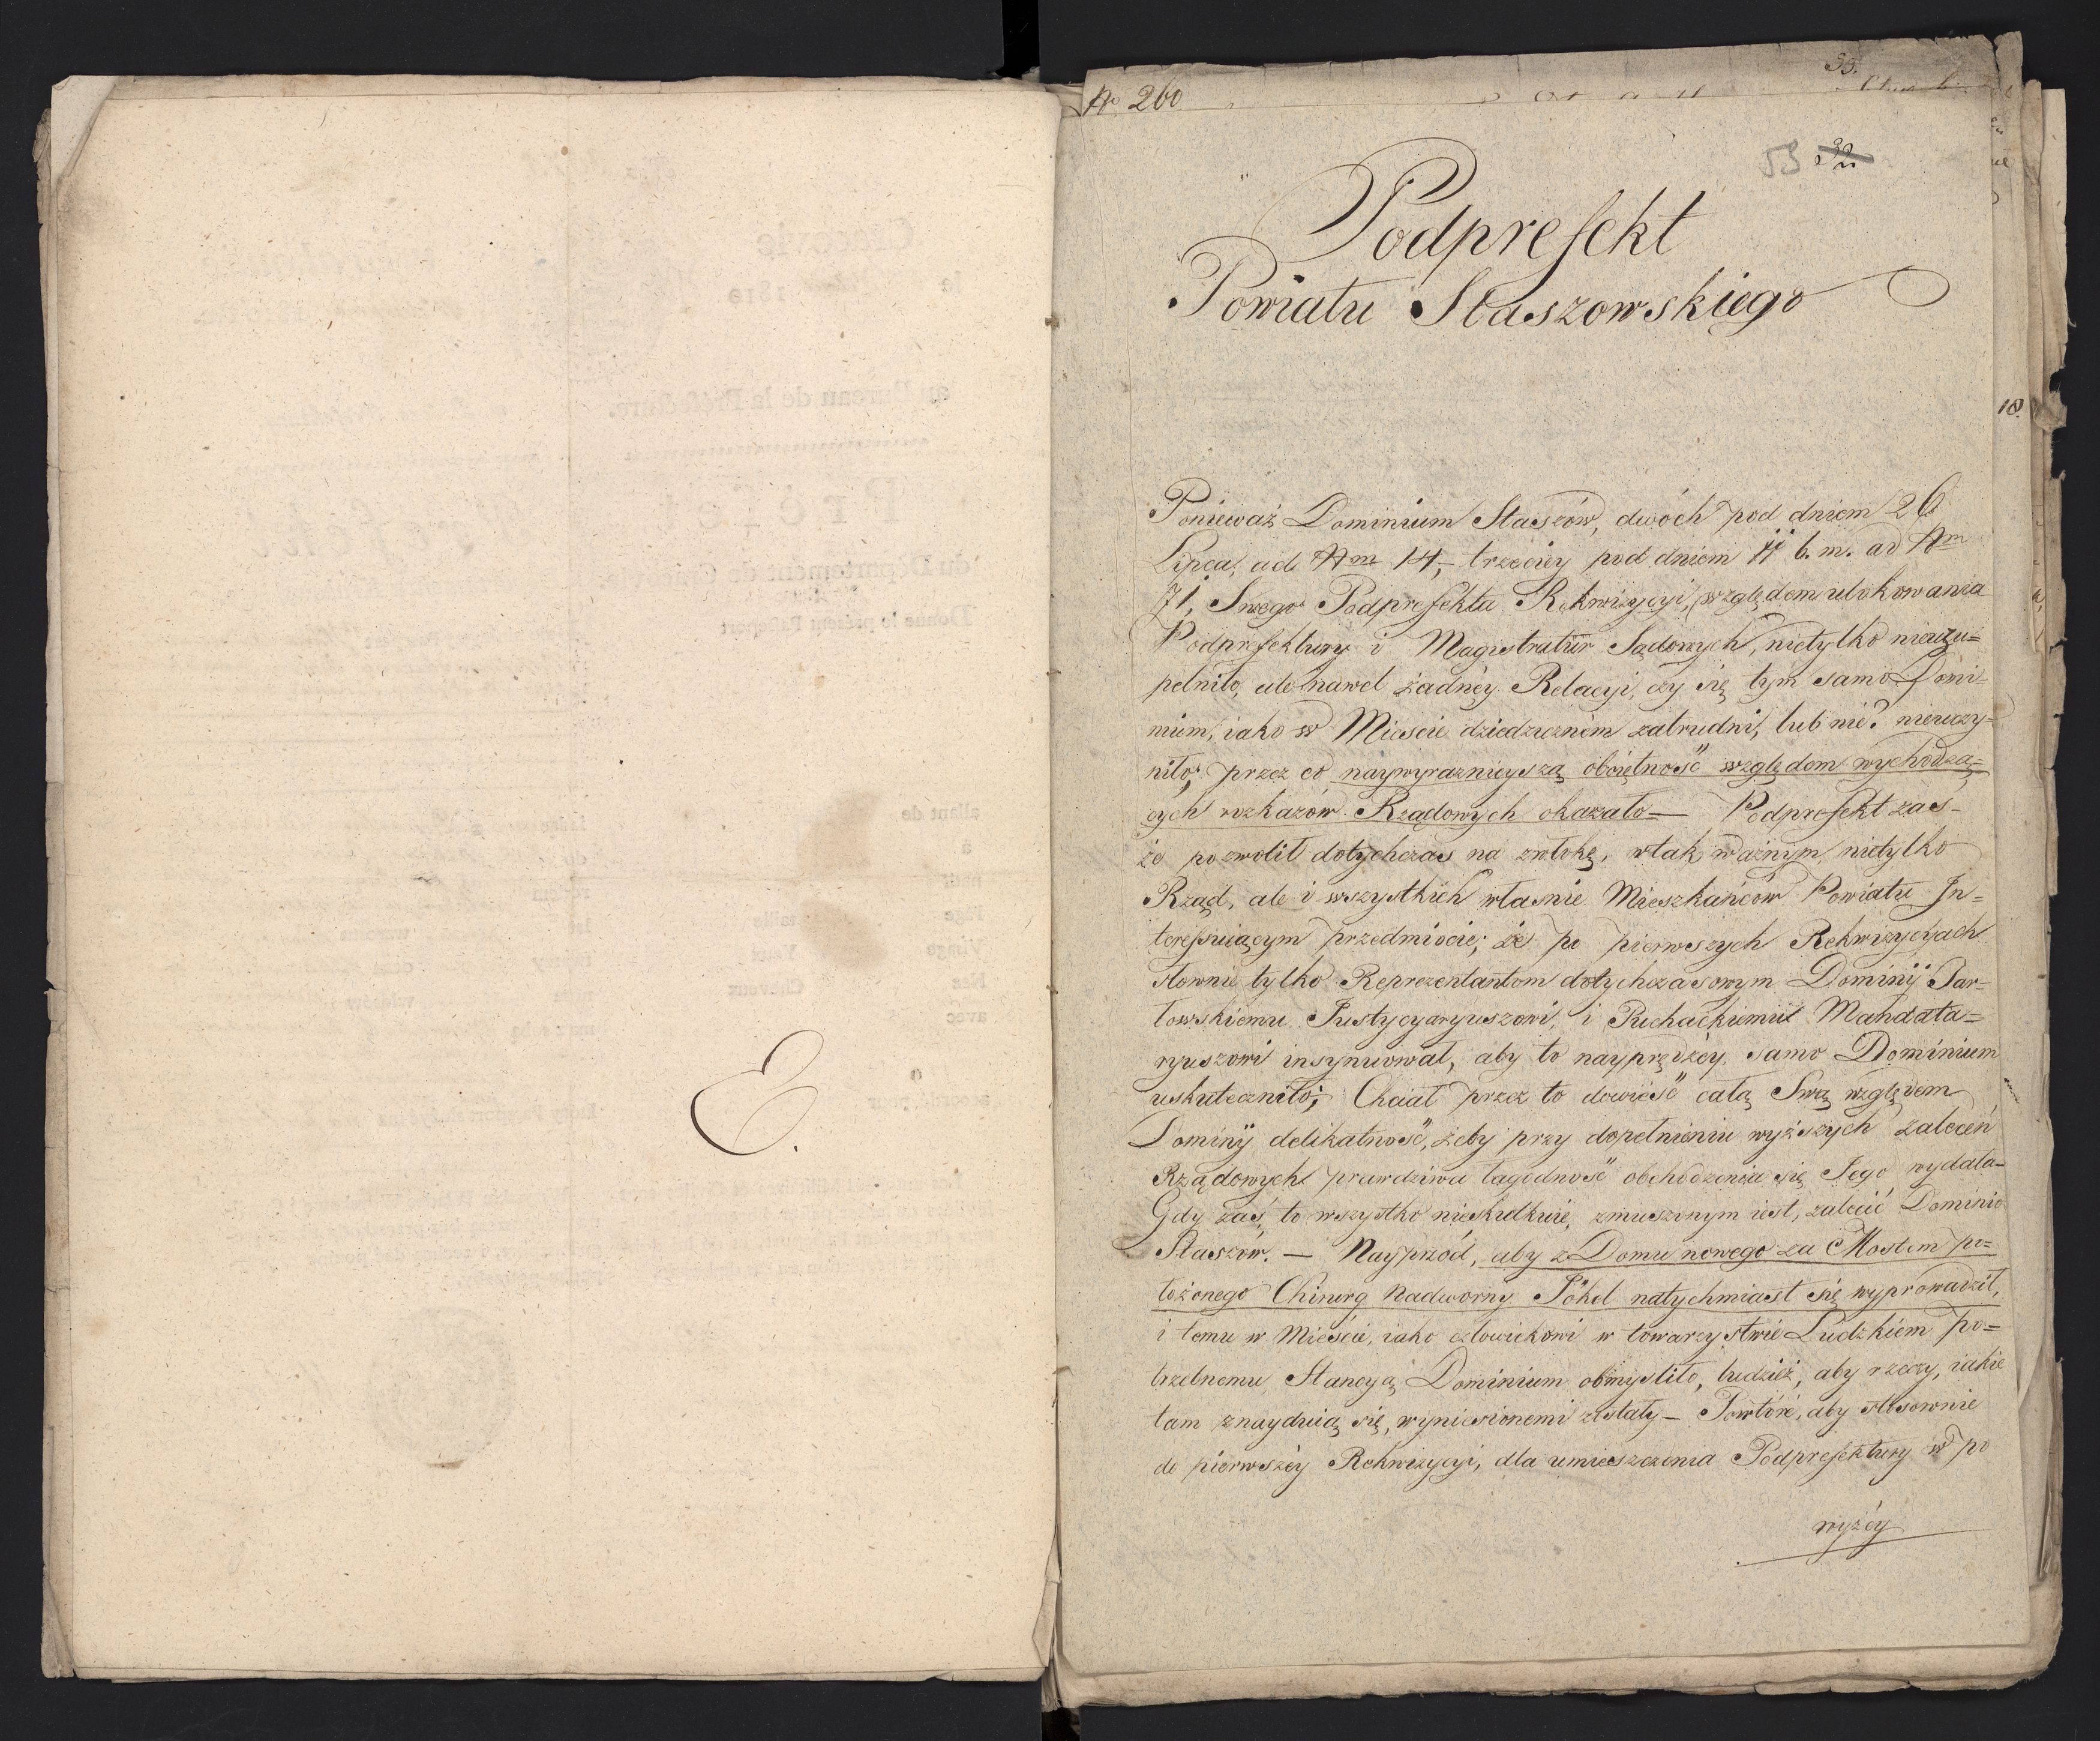 E.
No 260
33.
53 32
Podprefekt
Powiatu Staszowskiego
18.
Ponieważ Dominium Staszów, dwóch pod dniem 26
Lipca, ad Nm 14, trzeciey pod dniem 11 b. m. ad Nm
71, Swego Podprefekta Rekwizycyi, względem ulokowania
Podprefektury i Magistratur Sądowych, nietylko nieuzu=
pełniło, ale nawet żadnéy Relacyi, czy się tym samo Domi=
nium, iako w Mieście dziedziczném zatrudni, lub nie? nieuczy=
niło; przez co naywyraznieyszą oboiętność względem wychodzą=
cych rozkazów Rządowych okazało= Podprefekt zaś-
że pozwolił dotychczas na zwłokę, w tak ważnym nietylko
Rząd, ale i wszystkich własnie Mieszkańców Powiatu In=
teressuiącym przedmiocie; że po pierwszych Rekwizycyach
słownie tylko Reprezentantom dotychczasowym Dominij Jar=
łowskiemu Justycyaryuszowi, i Puchackiemu Mandata=
ryuszowi insynuował, aby to nayprędzéy samo Dominium
uskuteczniło; Chciał przez to dowieść całą Swą względem
Dominij delikatność, żeby przy dopełnieniu wyższych zaleceń
Rządowych prawdziwa łagodność obchodzenia się Jego wydała=
Gdy zaś to wszystko nieskutkuie, zmuszonym iest, zalecić Dominio
Staszów. — Nayprzód, aby z Domu nowego za Mostem po=
łożonego Chirurg Nadworny Jökel natychmiast się wyprowadził,
i temu w Mieście, iako człowiekowi w towarzystwie Ludzkiem po=
trzebnemu Stancyą Dominium obmyśliło, tudzież, aby rzeczy, iakie
tam znayduią się, wyniesionemi zostały — Powtóre, aby stosownie
do pierwszéy Rekwizycyi, dla umieszczenia Podprefektury w po
wyżéy